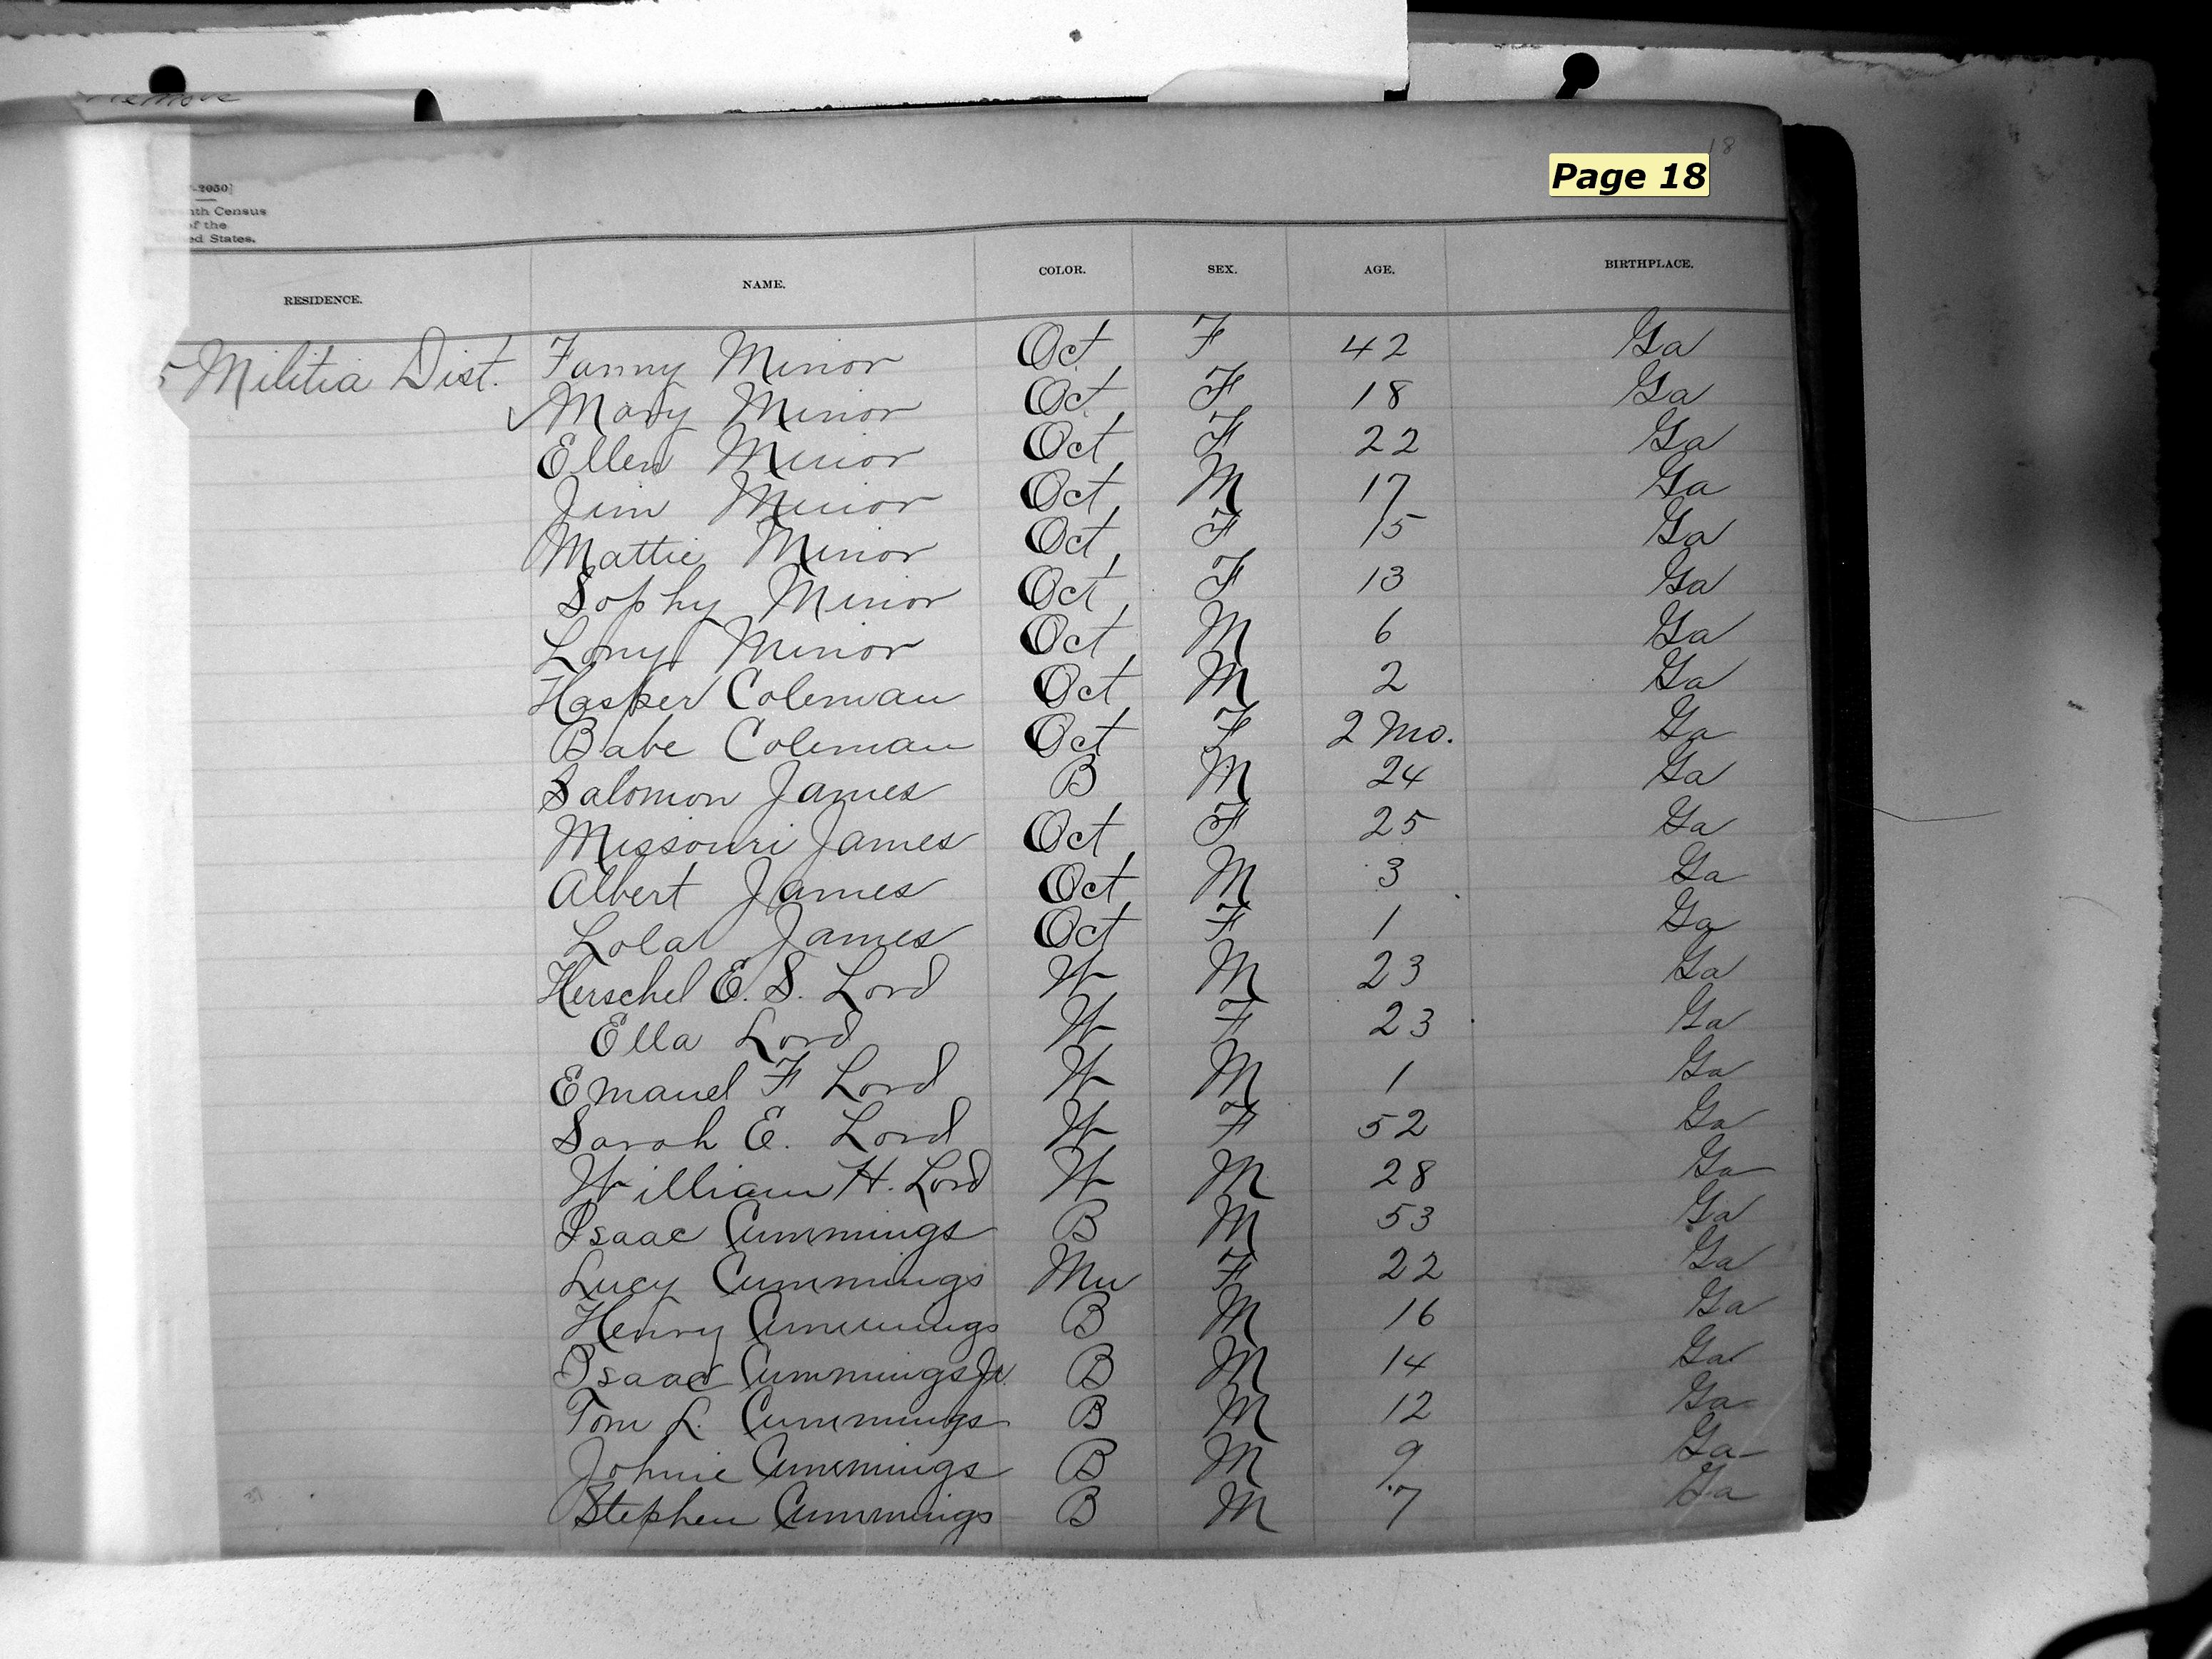 Remove
18
Page 18
-2050]
nth Census
of the
ed States.
RESIDENCE. NAME. COLOR. SEX. AGE. BIRTHPLACE.
5 Militia Dist. Fanny Minor Oct F 42 Ga
✓ Mary Minor Oct F 18 Ga
Ellen Minor Oct F 22 Ga
Jim Minor Oct M 17 Ga
Mattie Minor Oct F 15 Ga
Sophy Minor Oct F 13 Ga
Lony Minor Oct M 6 Ga
Hasker Coleman Oct M 2 Ga
Babe Coleman Oct F 2 Mo. Ga
Salomon James B M 24 Ga
Missouri James Oct F 25 Ga
Albert James Oct M 3 Ga
Lola James Oct F 1 Ga
Herschel E. S. Lord W M 23 Ga
Ella Lord W F 23 Ga
Emanel F Lord W M 1 Ga
Sarah E. Lord W F 52 Ga
William H. Lord W M 28 Ga
Isaac Cummings B M 53 Ga
Lucy Cummings Mu F 22 Ga
Henry Cummings B M 16 Ga
Isaac Cummings Jr. B M 14 Ga
Tom L. Cummings B M 12 Ga
Johnie Cummings B M 9 Ga
Stephen Cummings B M 7 Ga